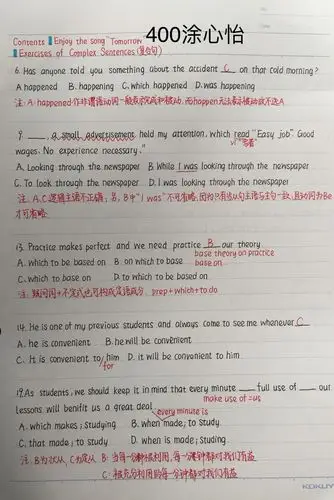 400涂心怡
Contents Enjoy the song "Tomorrow"
Exercises of Complex Sentences (复合句)
6. Has anyone told you something about the accident C on that cold morning?
A. happened B. happening C. which happened D. was happening
注: A. happened作非谓语动词一般表示完成和被动,而happen无法表示被动故不选A
9. ___, a small advertisement held my attention, which read "Easy job. Good
vi "写着"
wages. No experience necessary."
A. Looking through the newspaper B. While I was looking through the newspaper
C. To look through the newspaper D. I was looking through the newspaper
注: A.C逻辑主语不正确;另,B中"I was"不可省略,因为只有当从句主语与主句一致,且动词为Be
才可省略
13. Practice makes perfect and we need practice B our theory
base theory on practice
A. which to be based on B. on which to base base on
C. which to base on D. to which to be based on
注: 疑问词+不定式也可构成定语成分 prep+which+to do
14. He is one of my previous students and always come to see me whenever C
A. he is convenient B. he will be convenient
C. It is convenient to him D. it will be convenient to him
for
19. As students, we should keep it in mind that every minute ___ full use of ___ our
make use of = us
lessons will benifit us a great deal
every minute is
A. which makes; Studying B. when made; to study
C. that made; to study D. when is made; studing
注: B为状从,C为定从 B: 当每一分钟被利用,每一分钟都对我们有益
C: 被充分利用的每一分钟都对我们有益
KOKUYO